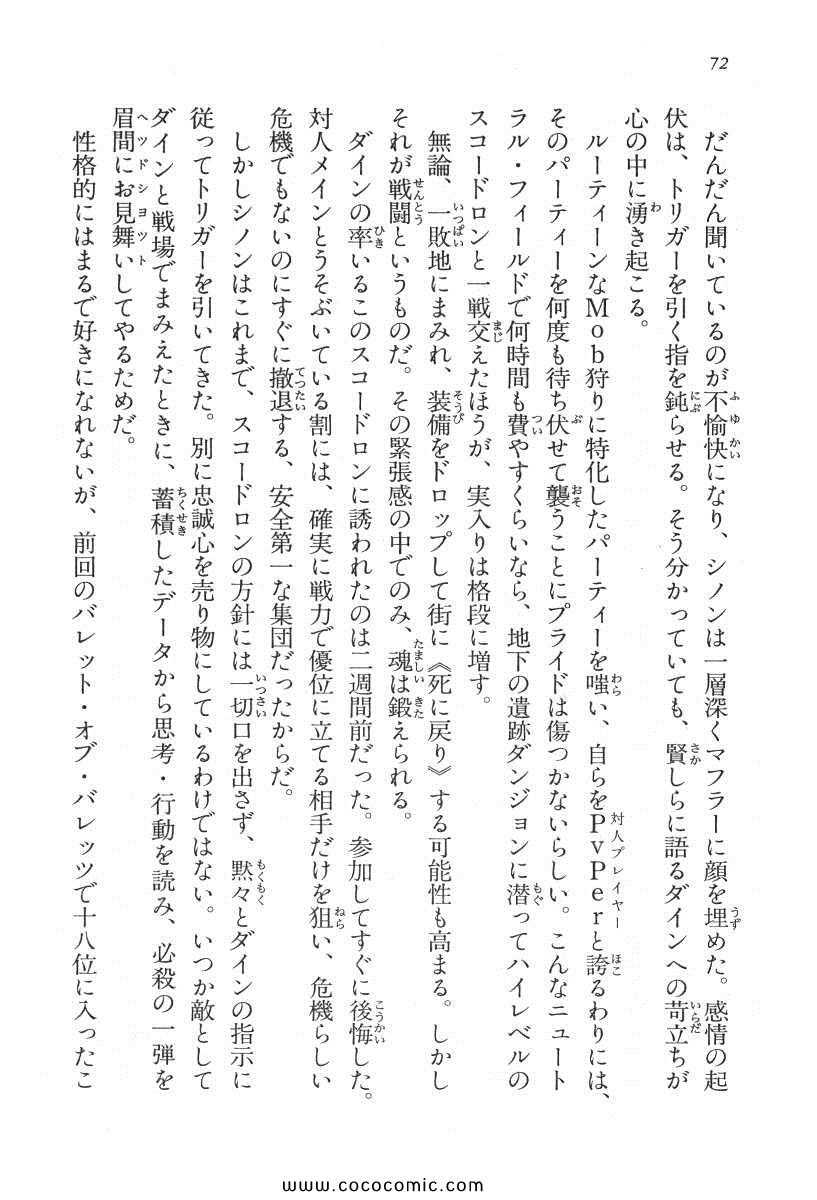 72
だんだん聞いているのが不愉快になり、シノンは一層深くマフラーに顔を埋めた。感情の起
伏は、トリガーを引く指を鈍らせる。そう分かっていても、賢しらに語るダインへの苛立ちが
心の中に湧き起こる。
ルーティーンなMob狩りに特化したパーティーを嗤い、自らをPvPerと誇るわりには、
そのパーティーを何度も待ち伏せて襲うことにプライドは傷つかないらしい。こんなニュート
ラル・フィールドで何時間も費やすくらいなら、地下の遺跡ダンジョンに潜ってハイレベルの
スコードロンと一戦交えたほうが、実入りは格段に増す。
無論、一敗地にまみれ、装備をドロップして街に《死に戻り》する可能性も高まる。しかし
それが戦闘というものだ。その緊張感の中でのみ、魂は鍛えられる。
ダインの率いるこのスコードロンに誘われたのは二週間前だった。参加してすぐに後悔した。
対人メインとうそぶいている割には、確実に戦力で優位に立てる相手だけを狙い、危機らしい
危機でもないのにすぐに撤退する、安全第一な集団だったからだ。
しかしシノンはこれまで、スコードロンの方針には一切口を出さず、黙々とダインの指示に
従ってトリガーを引いてきた。別に忠誠心を売り物にしているわけではない。いつか敵として
ダインと戦場でまみえたときに、蓄積したデータから思考・行動を読み、必殺の一弾を
眉間にお見舞いしてやるためだ。
性格的にはまるで好きになれないが、前回のバレット・オブ・バレッツで十八位に入ったこ
www.cococomic.com